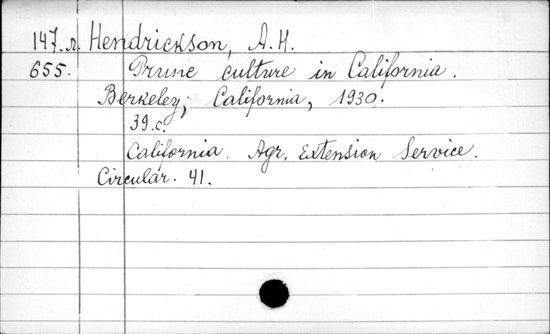 147.л. Hendrickson, A.H.
655. Prune culture in California.
Berkeley, California, 1930.
39.c.
California. Agr. Extension Service.
Circular. 41.